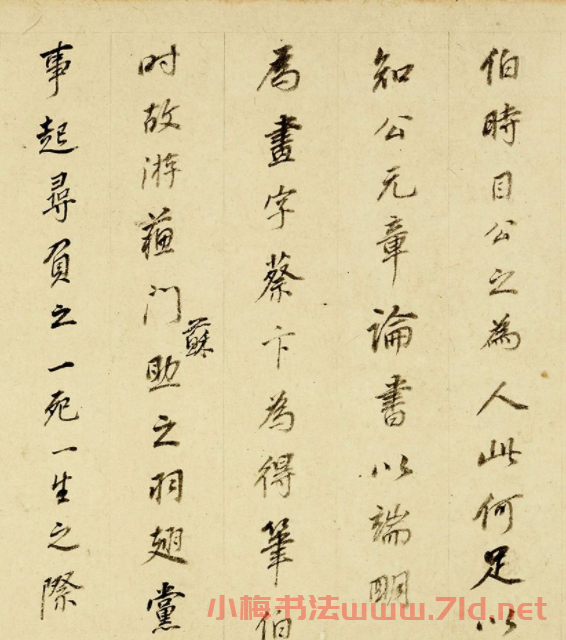 伯時目公之為人此何足以
知公元章論書以端明
為畫字蔡卞為得筆伯
时故游蘓门助之羽翅黨
蘇
事起尋負之一死一生之際
小梅书法www.7ld.net